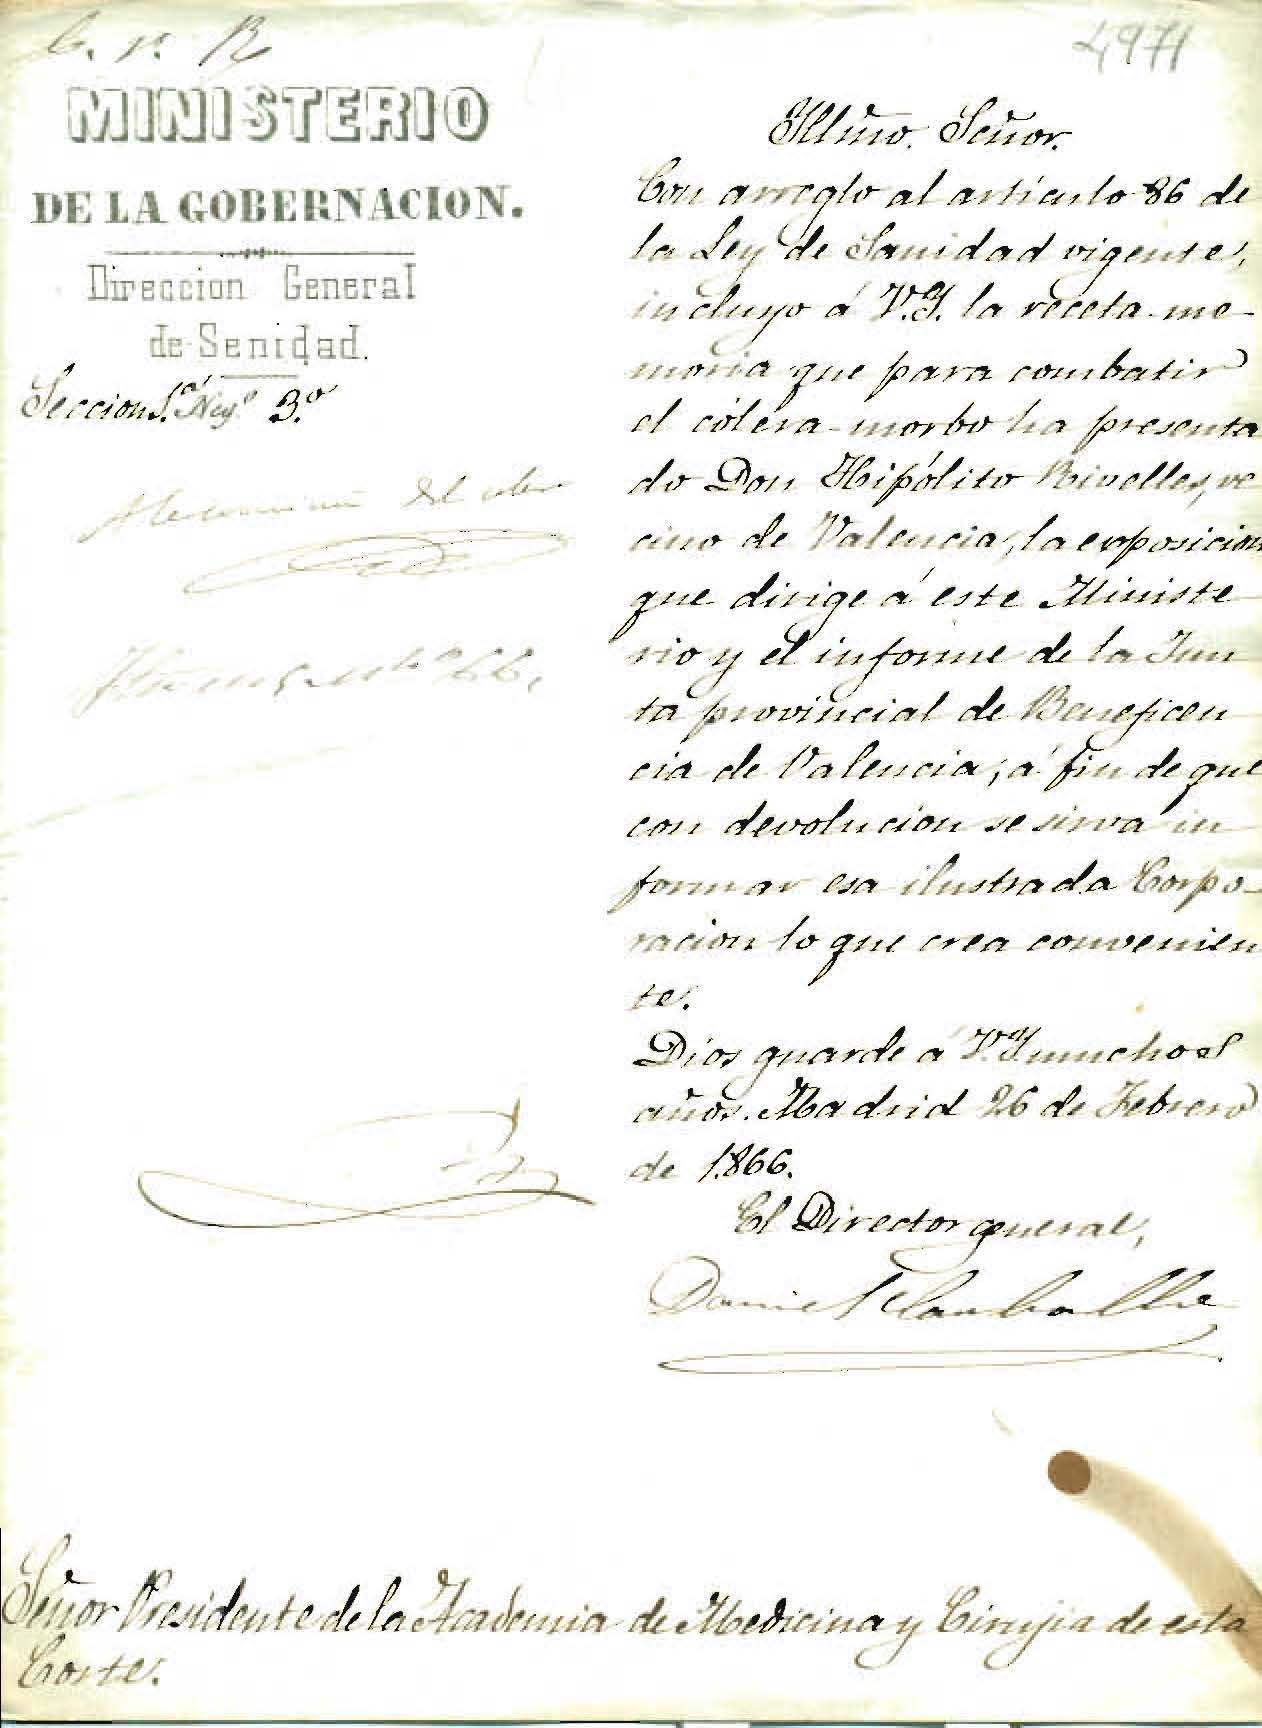 4971
MINISTERIO
DE LA GOBERNACION.
Direccion General
de Senidad.
Seccion 1.ª Neg.º 3.º
Illmo. Señor.
Con arreglo al artículo 86 de
la Ley de Sanidad vigente,
incluyo á V.I. la receta me-
moria que para combatir
el cólera-morbo ha presenta
do Don Hipólito Rivelles, ve
cino de Valencia, la exposicion
que dirige á este Ministe
rio y el informe de la Jun
ta provincial de Beneficen
cia de Valencia, á fin de que
con devolucion se sirva in
formar esa ilustrada Corpo-
racion lo que crea convenien
te.
Dios guarde á V.I. muchos
años. Madrid 26 de Febrero
de 1.866.
El Director general,
Daniel Carballo
Señor Presidente de la Academia de Medicina y Cirujia de esta
Corte.